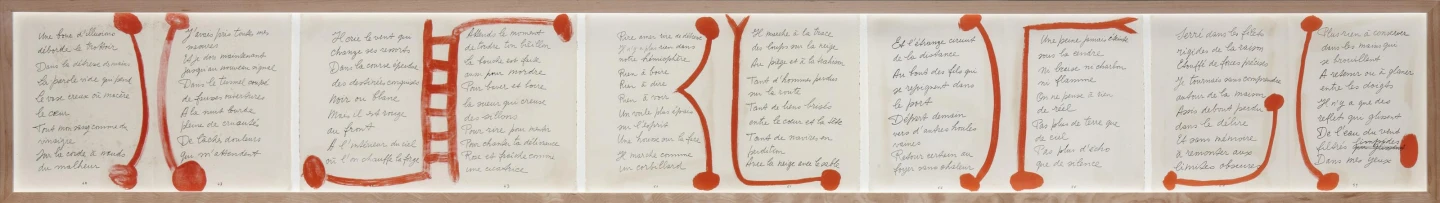 Une boue d'illusions
déborde le trottoir
Dans la détresse
La parole vide qui pend
Le vase creux où macère
le cœur
Tout mon sang comme du
vinaigre
Sur la corde à nœuds
du malheur
J'avais pris toutes mes
mesures
Et je vais maintenant
jusqu'au nouveau signal
Dans le tunnel coupé
de fausses meurtrières
A la nuit lourde
pleine de cruauté
De lâches douleurs
qui m'attendent
Horée le vent qui
change ses ressorts
Dans la course éperdue
des destinées conquises
Noir ou blanc
Mais il est rouge
au front
A l'intérieur du ciel
où l'on chauffe la forge
Attends le moment
de tordre ton bâillon
La bouche est faite
aussi pour mordre
Pour baiser et boire
la sueur qui creuse
des sillons
Pour rire pour mentir
Pour chanter la délivrance
Rose et fraîche comme
une cicatrice
Il n'y a plus rien dans
notre hémisphère
Rien à boire
Rien à dire
Rien à voir
Un voile plus épais
sur l'esprit
Une housse sur la face
Il marche comme
un corbillard
Il marche à la trace
des loups sur la neige
Au piège et à la trahison
Tant d'hommes perdus
sur la route
Tant de liens brisés
entre le cœur et la tête
Tant de navires en
perdition
Avec la neige
Est l'étrange circuit
de la distance
Au bout des fils qui
se rejoignent dans
le port
Départ demain
vers d'autres hontes
vaines
Retour certain au
foyer sans chaleur
Une peine jamais éteinte
sous la cendre
Ni braise ni charbon
ni flamme
On ne pense à rien
de réel
Pas plus de terre que
de ciel
Pas plus d'écho
que de silence
Serré dans les filets
rigides de la raison
Étouffé de forces précises
Je tournais sans comprendre
autour de la maison
Assis debout perdu
dans le délire
Et sans mémoire
à remonter aux
limites obscures
Plus rien à conserver
dans les mains qui
se brouillent
A retenir ou à glaner
entre les doigts
Il n'y a que des
reflets qui glissent
De l'eau du vent
filtrés limpides
Dans mes yeux